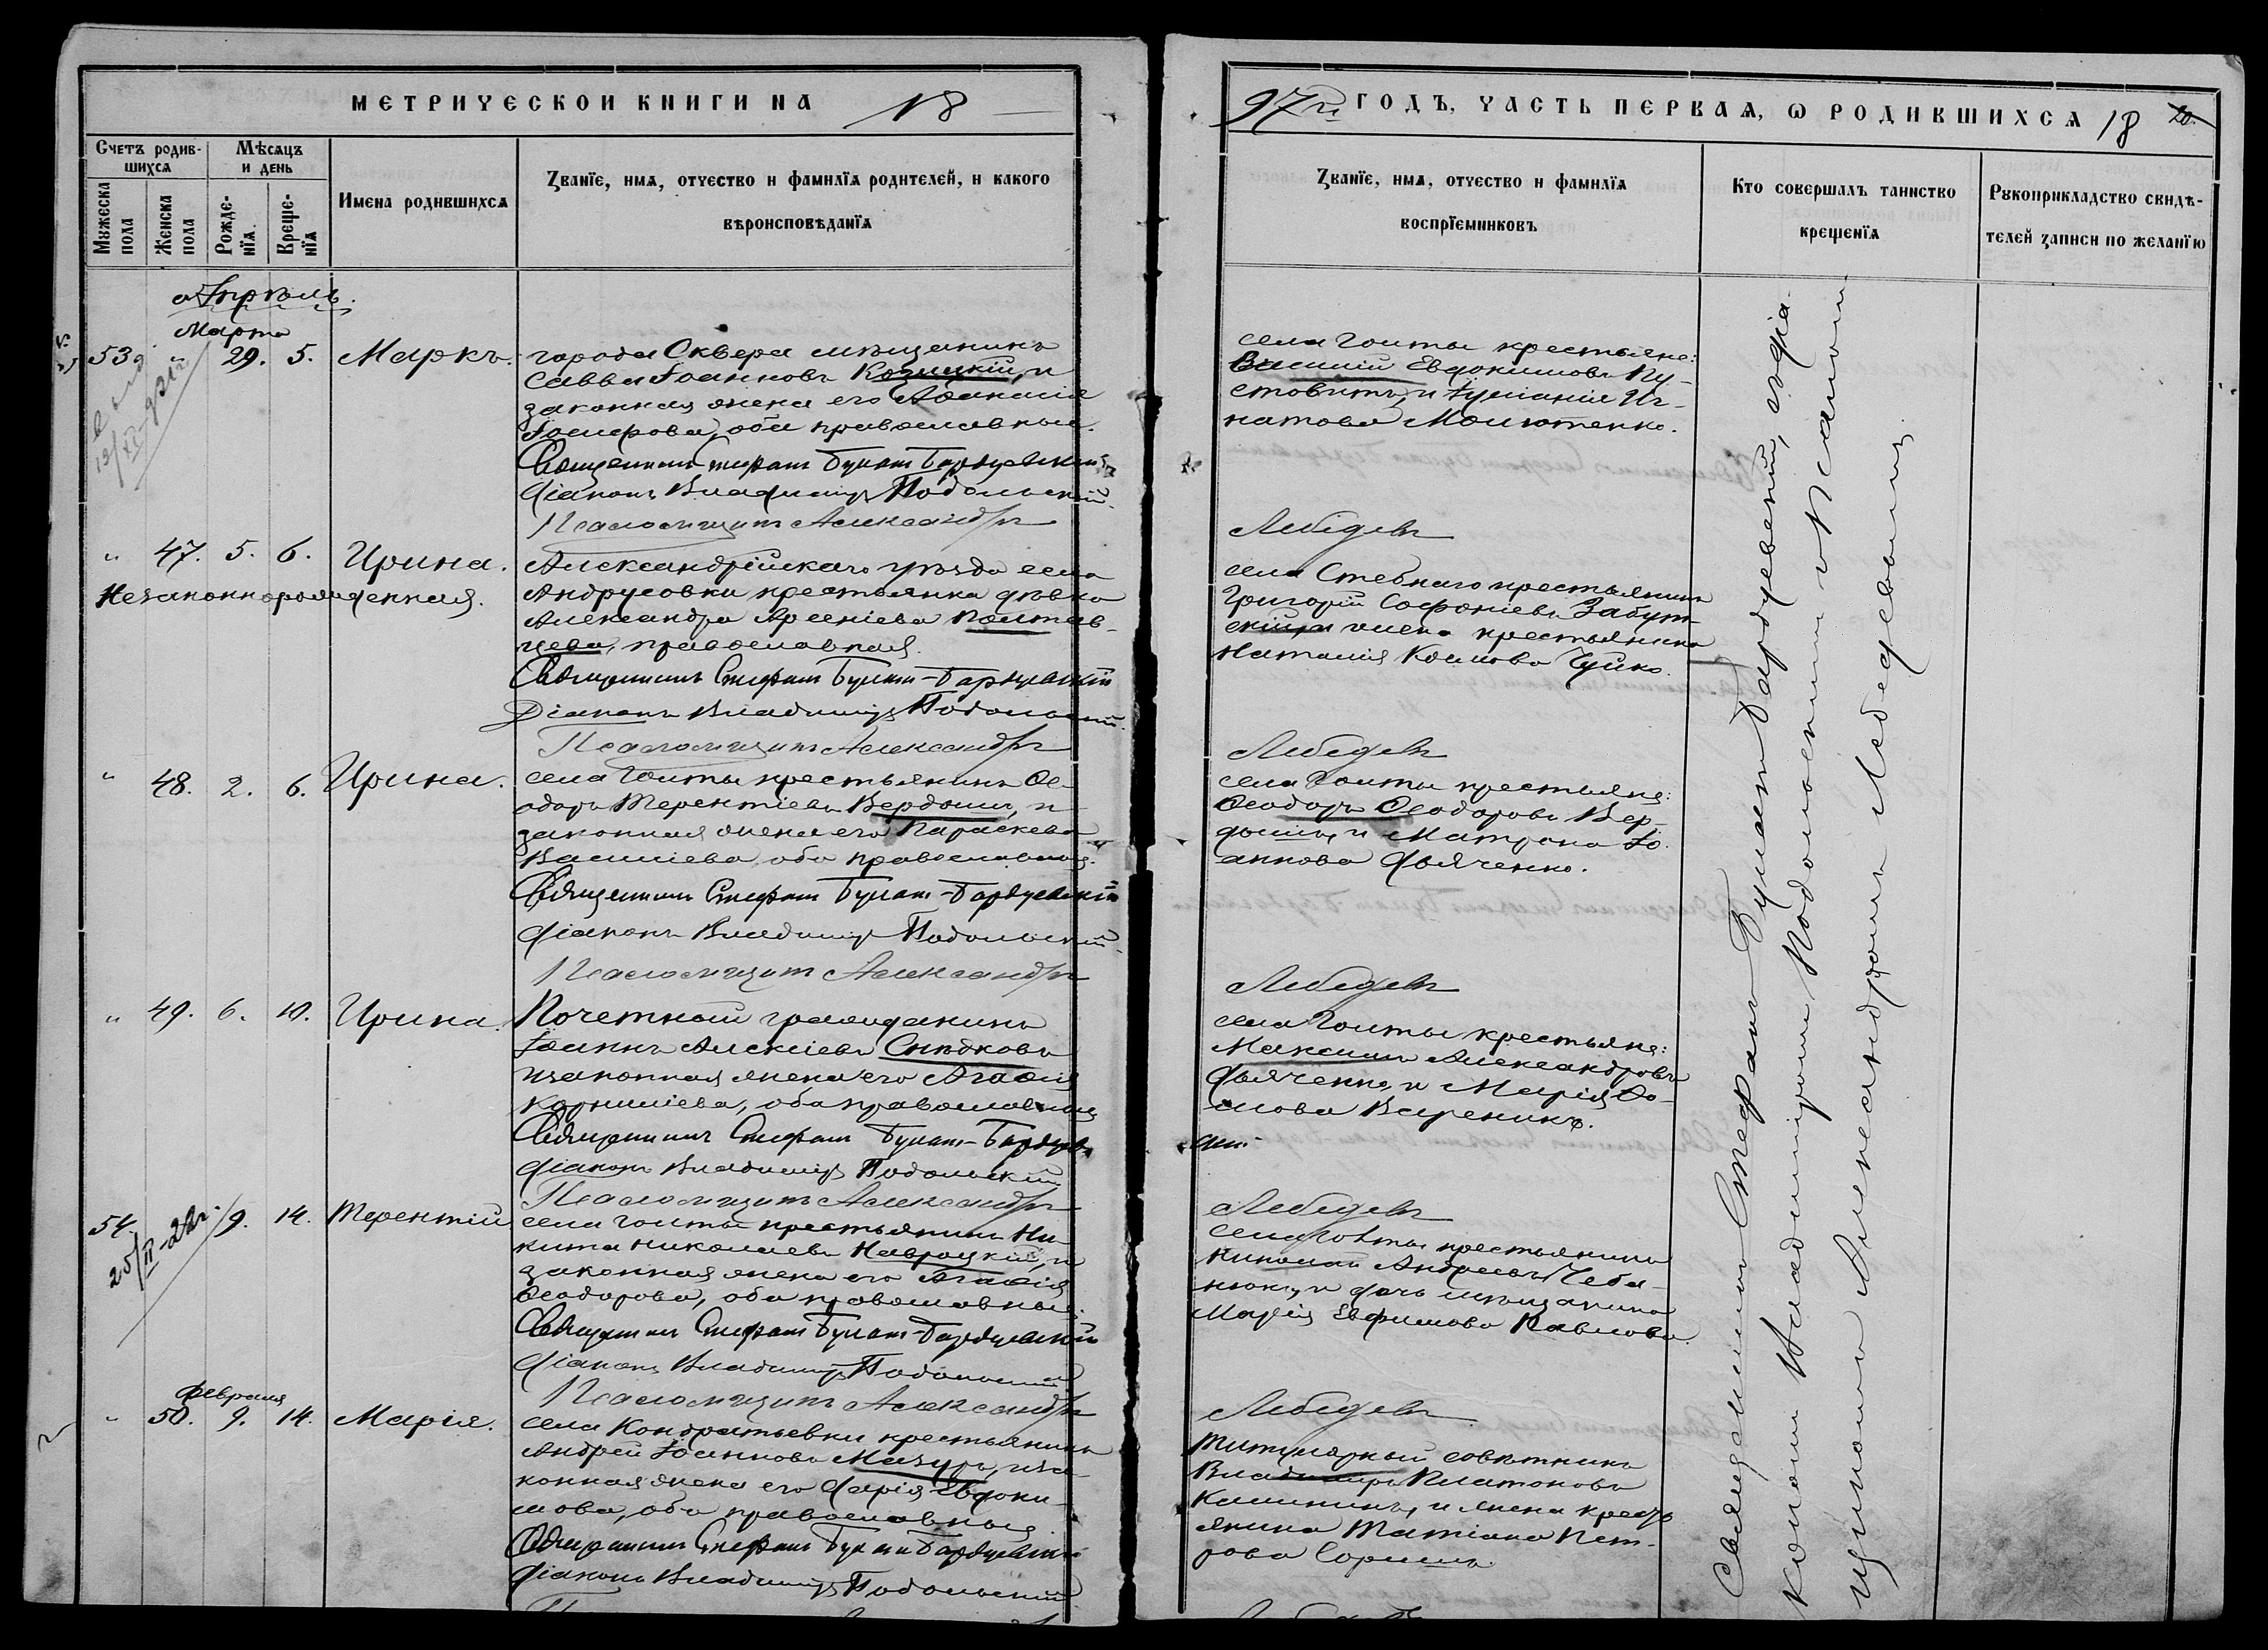 МЕТРИЧЕСКОЙ КНИГИ НА 18
97 г. ГОДЪ, ЧАСТЬ ПЕРВАЯ, Ѡ РОДИВШИХСЯ 18
Счетъ родив-
шихся
Мѣсяцъ
и день
Мужеска
пола
Женска
пола
Рожде-
нія.
Креще-
нія
Имена родившихся
Званіе, имя, отчество и фамилія родителей, и какого
вѣроисповѣданія
Званіе, имя, отчество и фамилія
воспріемниковъ
Кто совершалъ таинство
крещенія
Рукоприкладство свидѣ-
телей записи по желанію
Апрѣль.
Марта
53 " 29. 5. Маркъ.
города Сквера мѣщанинъ
Савва Іоанновъ Козицкій, и
законная жена его Аѳанасія
Іосифова, оба православные.
Священникъ Стефанъ Булатъ-Бардуевскій
Діаконъ Владиміръ Подольскій.
Псаломщикъ Александръ
села Голты крестьяне:
Василій Евдокимовъ Пу-
стовитъ, и Іуліанія Иг-
натова Молютенко.
Лебедевъ
" 47. 5. 6. Ирина.
Незаконнорожденная.
Александрійскаго уѣзда села
Андрусовки крестьянка дѣвка
Александра Арсеніева Полтав-
цева, православная.
Священникъ Стефанъ Булатъ-Бардуевскій
Діаконъ Владиміръ Подольскій.
Псаломщикъ Александръ
села Стебнаго крестьянинъ
Григорій Софоніевъ Забут-
скій, и жена крестьянина
Наталія Космова Чуйко.
Лебедевъ
" 48. 2. 6. Ирина.
села Голты крестьянинъ Ѳе-
одоръ Терентіевъ Вердошъ, и
законная жена его Параскева
Василіева, оба православные.
Священникъ Стефанъ Булатъ-Бардуевскій
Діаконъ Владиміръ Подольскій.
Псаломщикъ Александръ
села Голты крестьяне:
Ѳеодоръ Ѳеодоровъ Вер-
дошъ, и Матрона Іо-
аннова Дьяченко.
Лебедевъ
" 49. 6. 10. Ирина.
Почетный гражданинъ
Іоаннъ Алексіевъ Снѣдковъ
и законная жена его Агаѳія
Корниліева, оба православные
Священникъ Стефанъ Булатъ-Бардуев
Діаконъ Владиміръ Подольскій
Псаломщикъ Александръ
села Голты крестьяне:
Максимъ Александровъ
Дьяченко, и Марія Ѳо-
мова Вареникъ.
Лебедевъ
54. 9. 14. Терентій
25/II-22г.
села Голты крестьянинъ Ни-
кита Николаевъ Навроцкій, и
законная жена его Агаѳія
Ѳеодорова, оба православные.
Священникъ Стефанъ Булатъ-Бардуевскій
Діаконъ Владиміръ Подольскій
Псаломщикъ Александръ
села Голты крестьянинъ
Николай Андреевъ Чеба-
нюкъ, и дочь мѣщанина
Марія Евфимова Павлова.
Лебедевъ
Февраля
" 50. 9. 14. Марія.
села Кондратьевки крестьянинъ
Андрей Іоанновъ Мазуръ, и за-
конная жена его Дарія Евдоки-
мова, оба православные.
Священникъ Стефанъ Булатъ-Бардуевскій
Діаконъ Владиміръ Подольскій
Титулярный совѣтникъ
Владиміръ Платоновъ
Калининъ, и жена кресть-
янина Татіана Пет-
рова
Священникъ Стефанъ Булатъ-Бардуевскій, съ діа-
кономъ Владиміромъ Подольскимъ и Псалом-
щикомъ Александромъ Лебедевымъ.